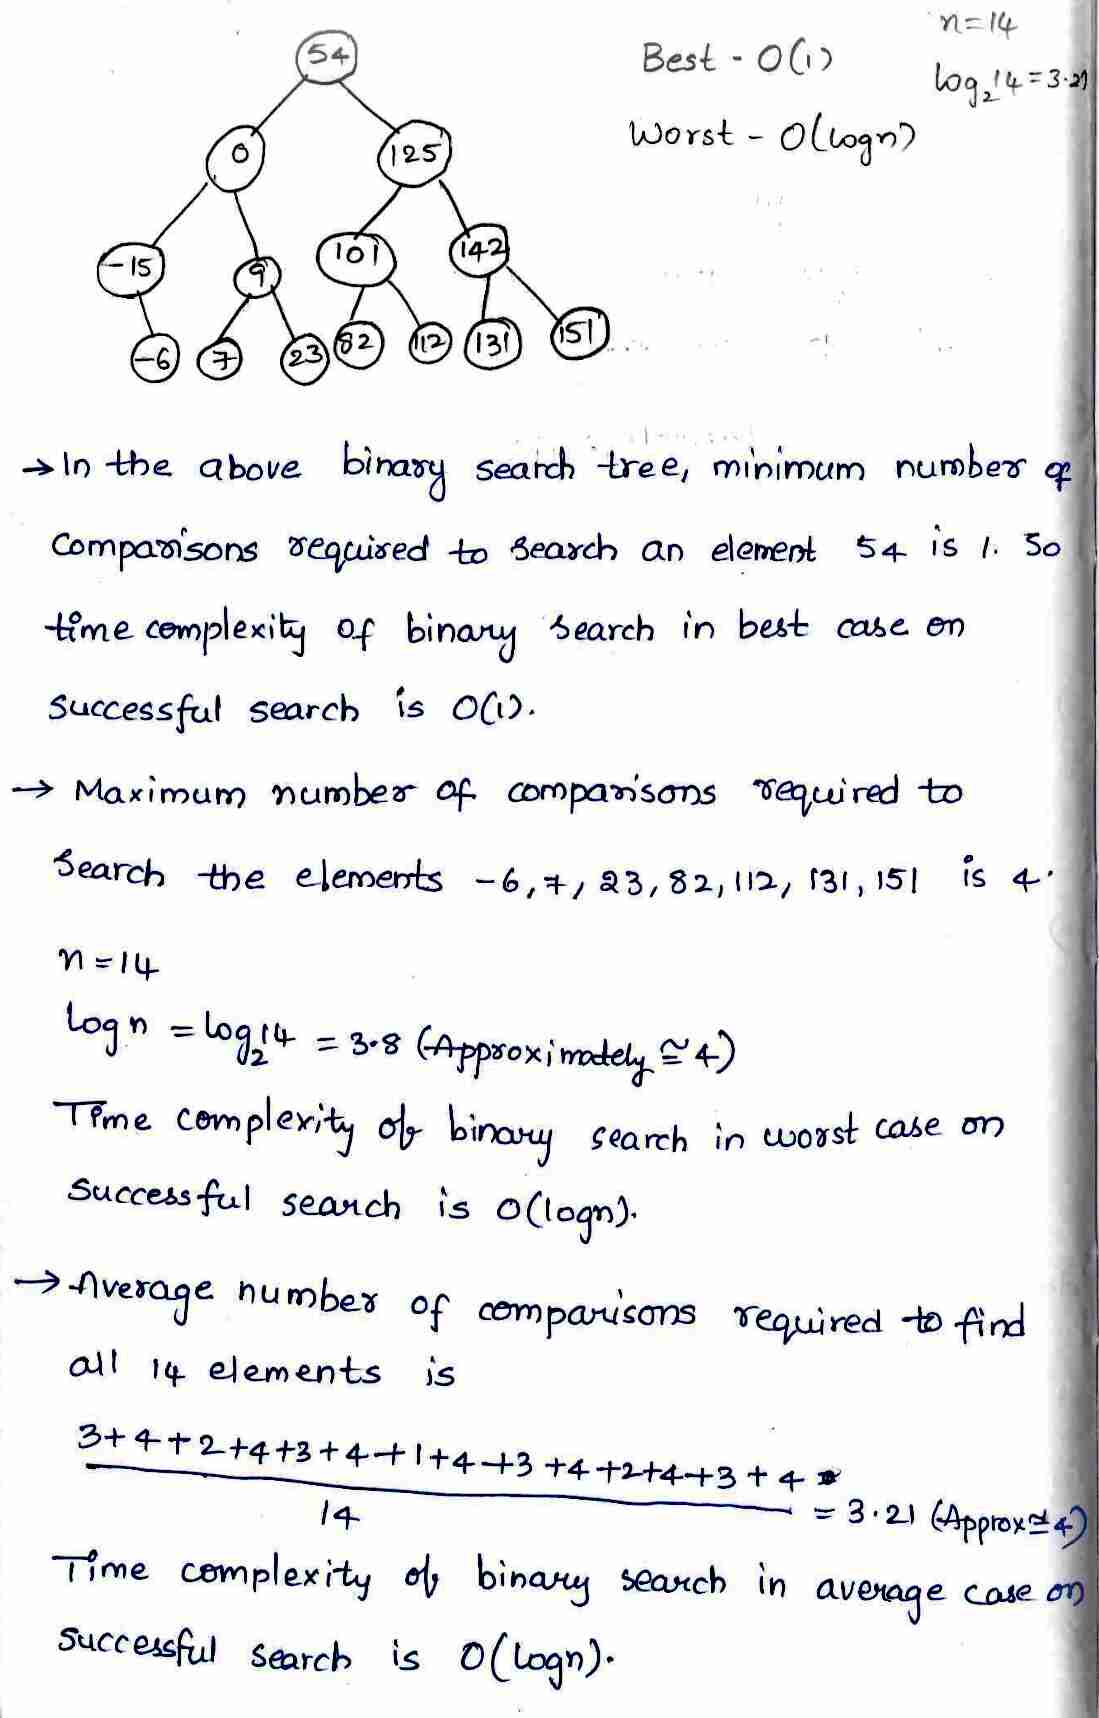 n=14
54
Best - O(1)
log₂14=3.21
0
125
Worst - O(logn)
-15
9
101
142
-6
7
23
82
112
131
151
→ In the above binary search tree, minimum number of
Comparisons required to search an element 54 is 1. So
time complexity of binary search in best case on
successful search is O(1).
→ Maximum number of comparisons required to
search the elements -6, 7, 23, 82, 112, 131, 151 is 4.
n=14
log n = log₂14 = 3.8 (Approximately ≅ 4)
Time complexity of binary search in worst case on
Successful search is O(logn).
→ Average number of comparisons required to find
all 14 elements is
3+4+2+4+3+4+1+4+3+4+2+4+3+4
14
= 3.21 (Approx ≅ 4)
Time complexity of binary search in average case on
successful search is O(logn).